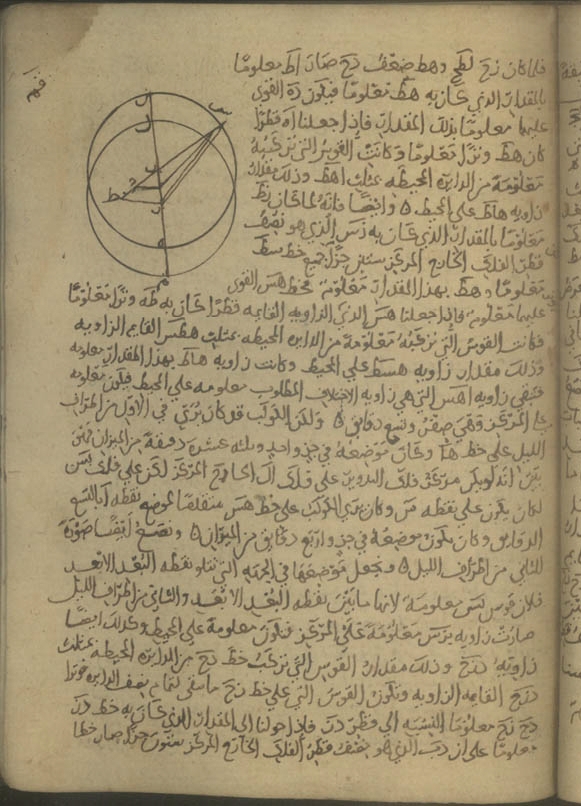 فلما كان زح لطح وهط ضعف دح صار اط معلوما
بالمقدار الذي كان به هط معلوما فيكون ره القوي
عليها معلوما بذلك المقدار فاذا جعلنا اه قطرا
كان هط وترا معلوما وكانت القوس التي تركبه
معلومة من الدايرة المحيطه بمثلث اهط وذلك مقدار
زاويه هاط على المحيط وايضا فانه لما كان زط
معلوما بالمقدار الذي كان به دس الذي هو نصف
قطر الفلك الخارج المركز ستين جزا جميع خط سط
معلوما وهط بهذا المقدار معلومة فخط هس القوي
عليها معلومة فاذا جعلنا هس الذي الزاوية القايمه قطرا كان به طه وترا معلوما
فكانت القوس التي تركبه معلومة من الدايره المحيطه بمثلث هطس القايم الزاويه
وذلك مقدار زاويه هسط على المحيط وكانت زاويه هاط بهذا المقدار معلومه
فتبقى زاويه اهس التي هي زاويه الاختلاف المطلوب معلومه على المحيط فيكون معلومه
على المركز وهي صفر وتسع دقايق ولكن الكوكب قد كان يرى في الاول من اطراف
الليل على خط ها وكان موضعه في جز واحد وثلثه عشره دقيقة من الميزان فهو
بين انه لو لم يكن مركز فلك التدوير على فلك ال الخارج المركز لكن على فلك سن
لكان يكون على نقطه س وكان يرى الكوكب على خط هس متقدما لموضع نقطه ا بالتسع
الدقايق وكان يكون موضعه في جز واربع دقايق من الميزان ونضع ايضا صورة
للثاني من اطراف الليل ونجعل موضعها في الجهه التي تتلو نقطه البعد الابعد
فلان قوس نس معلومة لانها ما بين نقطه البعد الابعد والثاني من اطراف الليل
صارت زاويه نرس معلومة على المركز فتكون معلومة على المحيط وكذلك ايضا
زاوية درح وذلك مقدار القوس التي تركب خط دح من الدايره المحيطه بمثلث
درح القايمه الزاويه وتكون القوس التي على خط زح ما بقي لتمام نصف الدايره فوترا
دح زح معلوما النسبه الى قطر در فاذا حولنا الى المقدار الذي كان به خط در
معلوما على ان دس الذي هو نصف قطر الفلك الخارج المركز ستون جزا صار خطا